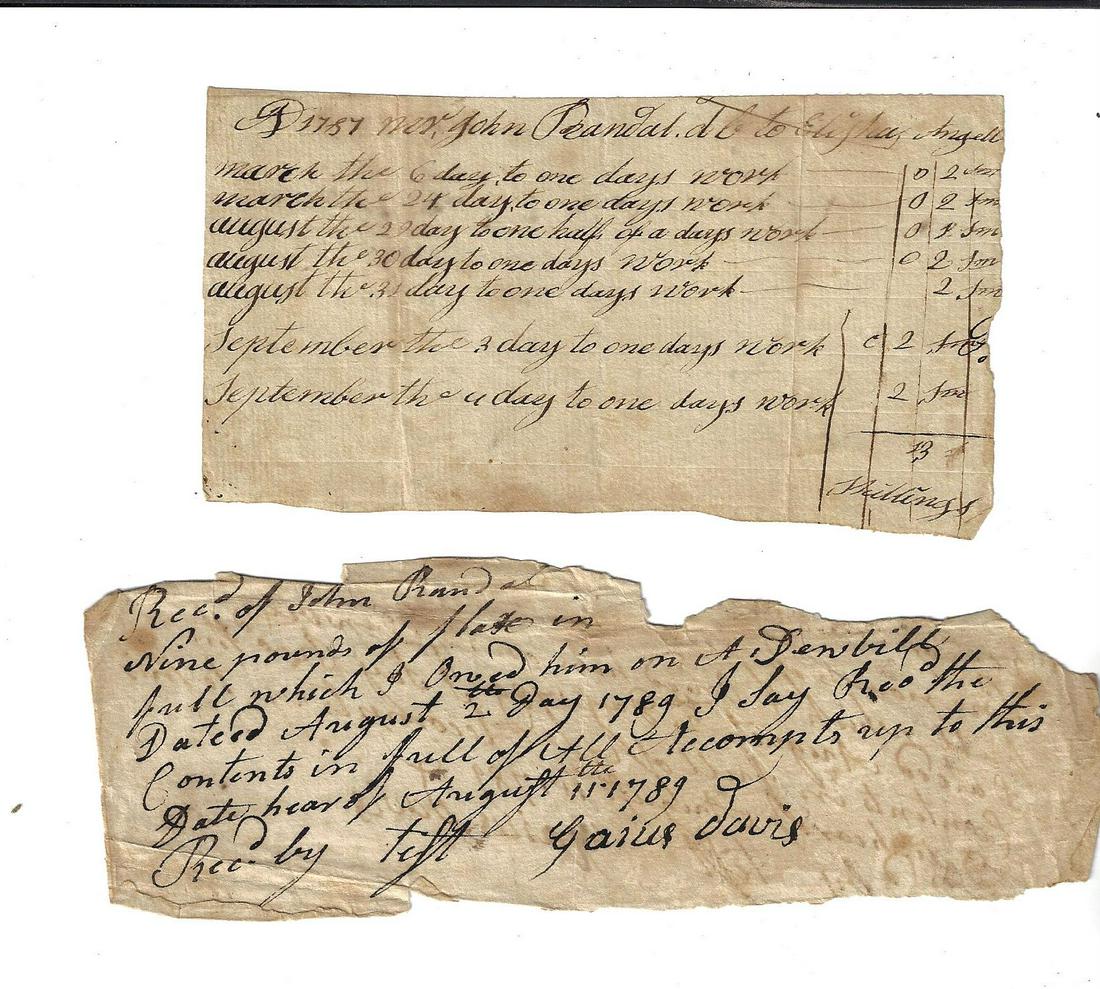 AD 1787 mr. John Randal. db to Elijhaj Angell
march the 6 day to one days work 0 2 sm
march the 24 day to one days work 0 2 sm
august the 29 day to one half of a days work 0 1 sm
august the 30 day to one days work 0 2 sm
august the 31 day to one days work 2 sm
September the 3 day to one days work 0 2 sm
September the 4 day to one days work 2 sm
13
Shillings
Recd. of John Randal
Nine pounds of flax in
full which I Owed him on A Denbill
Dateed August 2 Day 1789 I Say Recd the
Contents in full of All Accompts up to this
Date hear of August 11th 1789
Recd. by test Gaius Davis